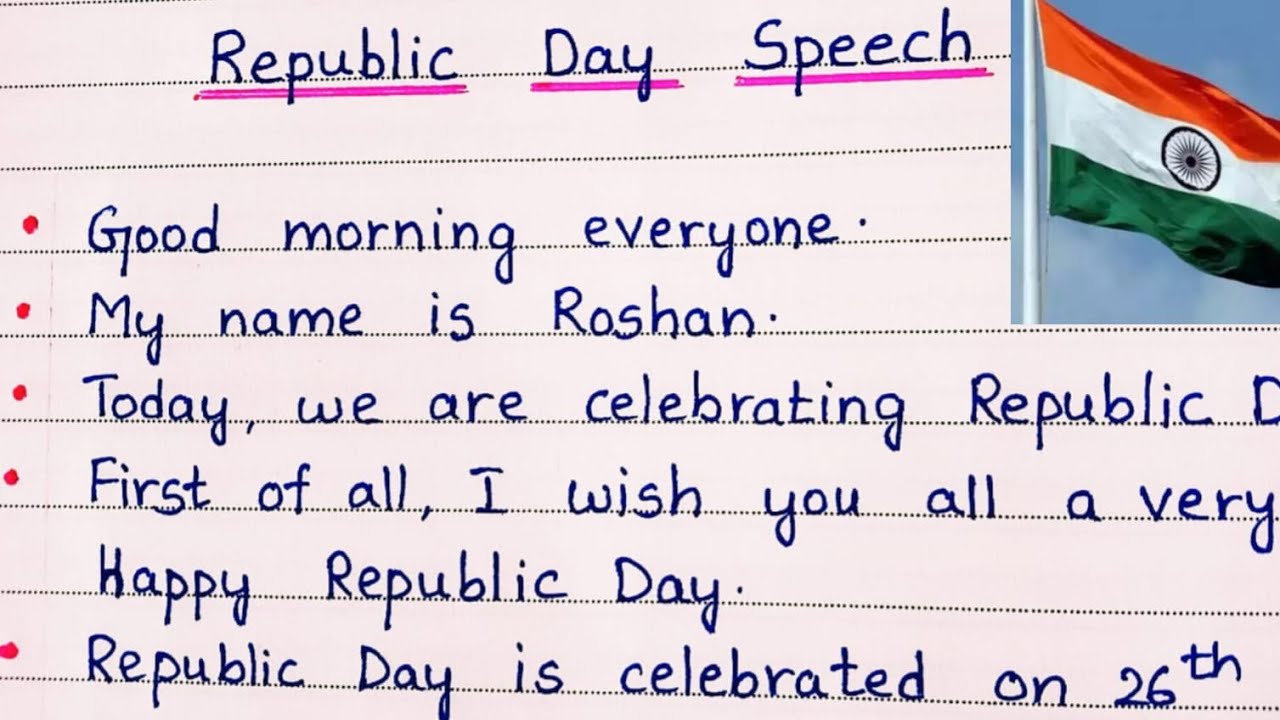 Republic Day Speech
• Good morning everyone.
• My name is Roshan.
• Today, we are celebrating Republic D
• First of all, I wish you all a very
Happy Republic Day.
• Republic Day is celebrated on 26th